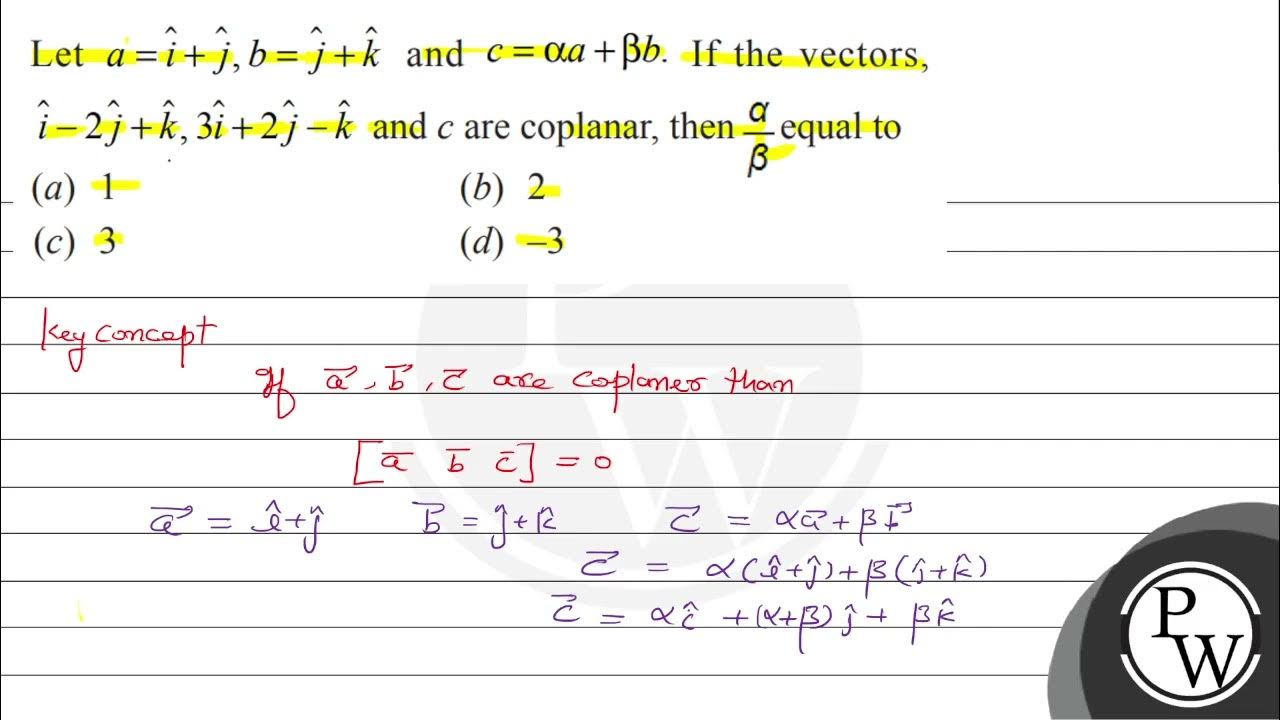 Let a = î + ĵ, b = ĵ + k̂ and c = αa + βb. If the vectors,
î − 2ĵ + k̂, 3î + 2ĵ − k̂ and c are coplanar, then α/β equal to
(a) 1 (b) 2
(c) 3 (d) −3
Key concept
If a⃗, b⃗, c⃗ are coplaner than
[a̅ b̅ c̅] = 0
a⃗ = î + ĵ b⃗ = ĵ + k̂ c⃗ = αa⃗ + βb⃗
c⃗ = α(î + ĵ) + β(ĵ + k̂)
c⃗ = αî + (α+β)ĵ + βk̂
P
W